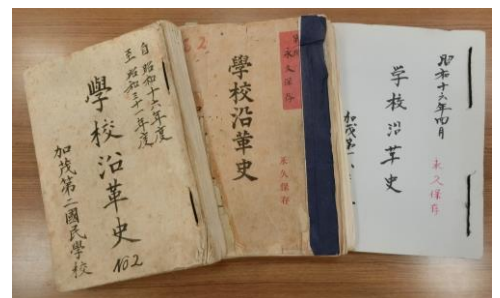 自昭和十六年度
至昭和三十一年度
學校沿革史
No2
加茂第二國民學校
永久保存
學校沿革史
永久保存
昭和十六年四月
学校沿革史
永久保存
加茂第一